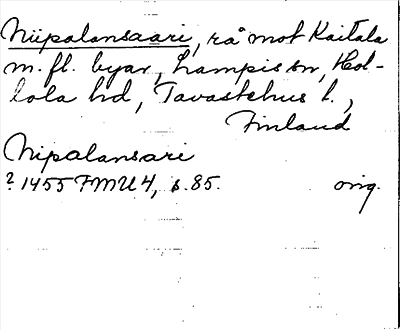 Niipalansaari, rå mot Kaitala
m. fl. byar, Lampis sn, Hol-
lola hd, Tavastehus l.,
Finland
Nipalansari
? 1455 FMU 4, s. 85. orig.